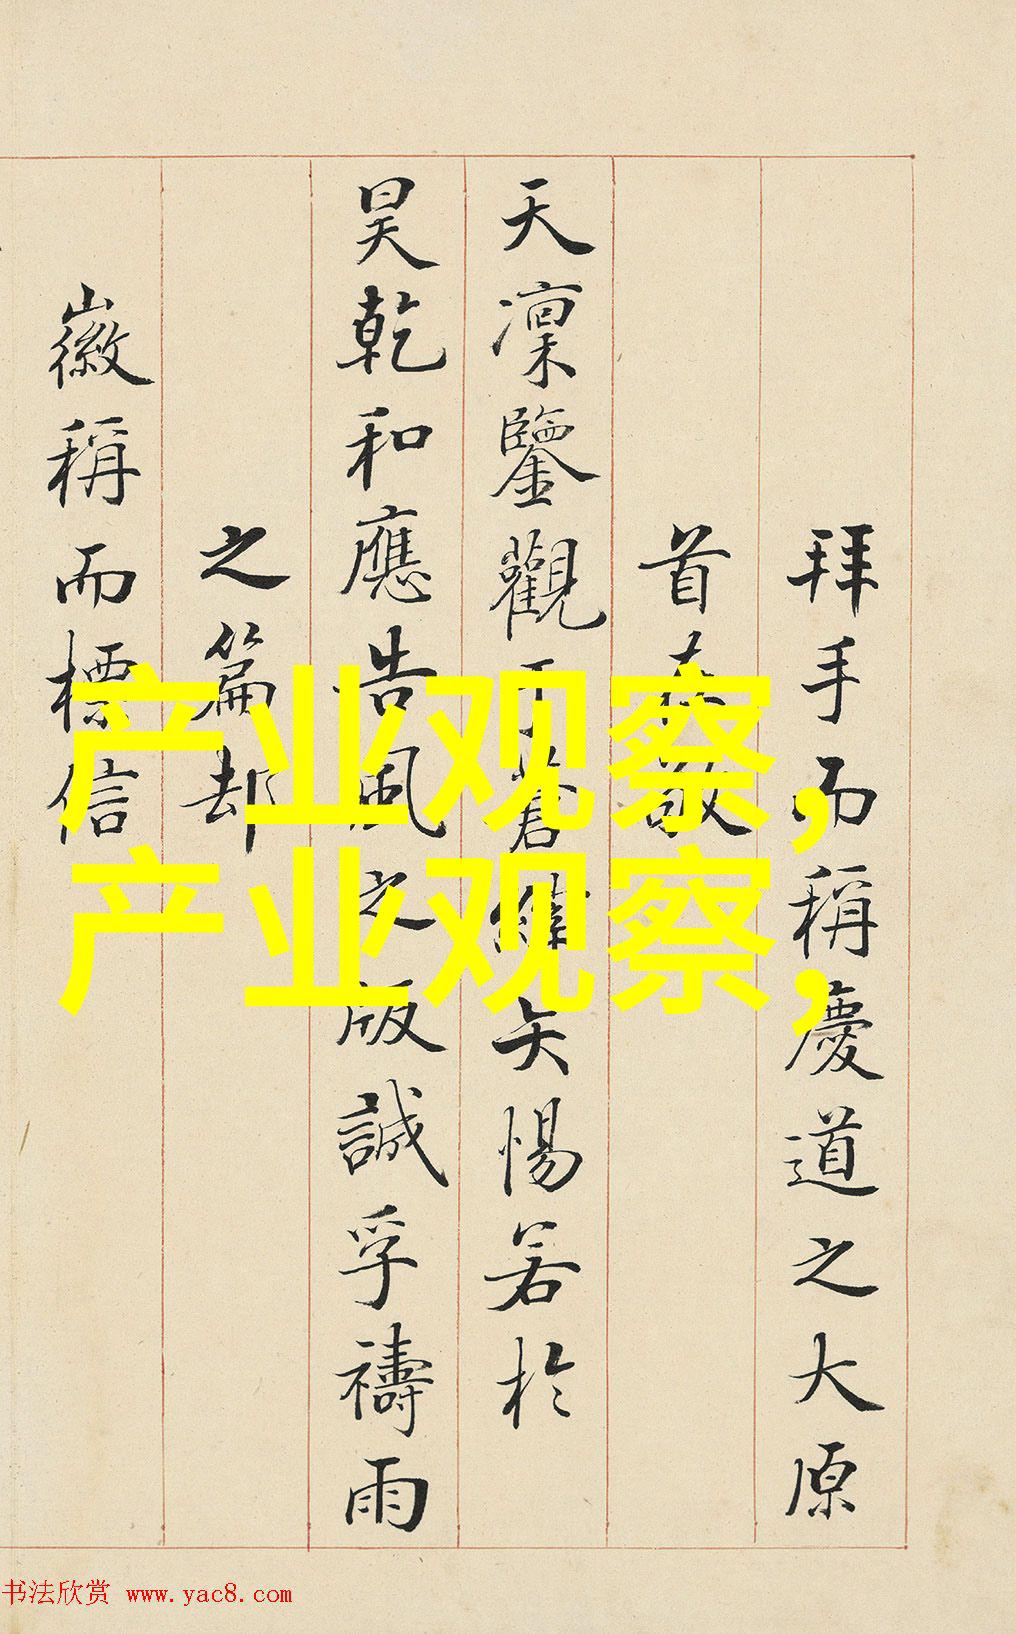 拜手而稱慶道之大原
首在敬
天凜鑒觀于蒼緯矢惕若於
昊乾和應告風之版誠孚禱雨
之篇却
徽稱而標信
产业观察，
产业观察，
书法欣赏 www.yac8.com